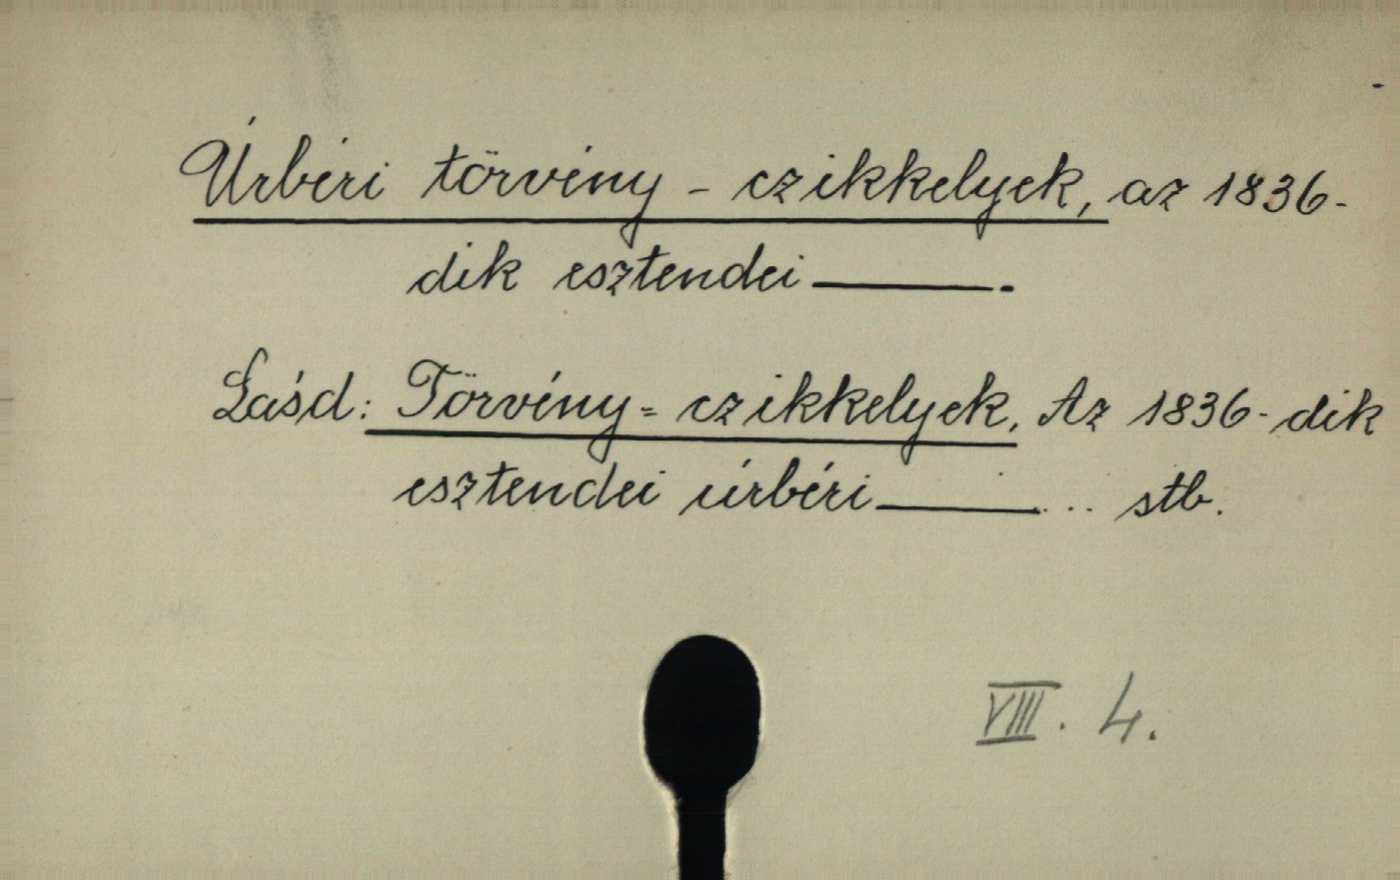 Úrbéri törvény - czikkelyek, az 1836-
dik esztendei ———.
Lásd: Törvény = czikkelyek, Az 1836-dik
esztendei úrbéri ——— ... stb.
VIII. 4.